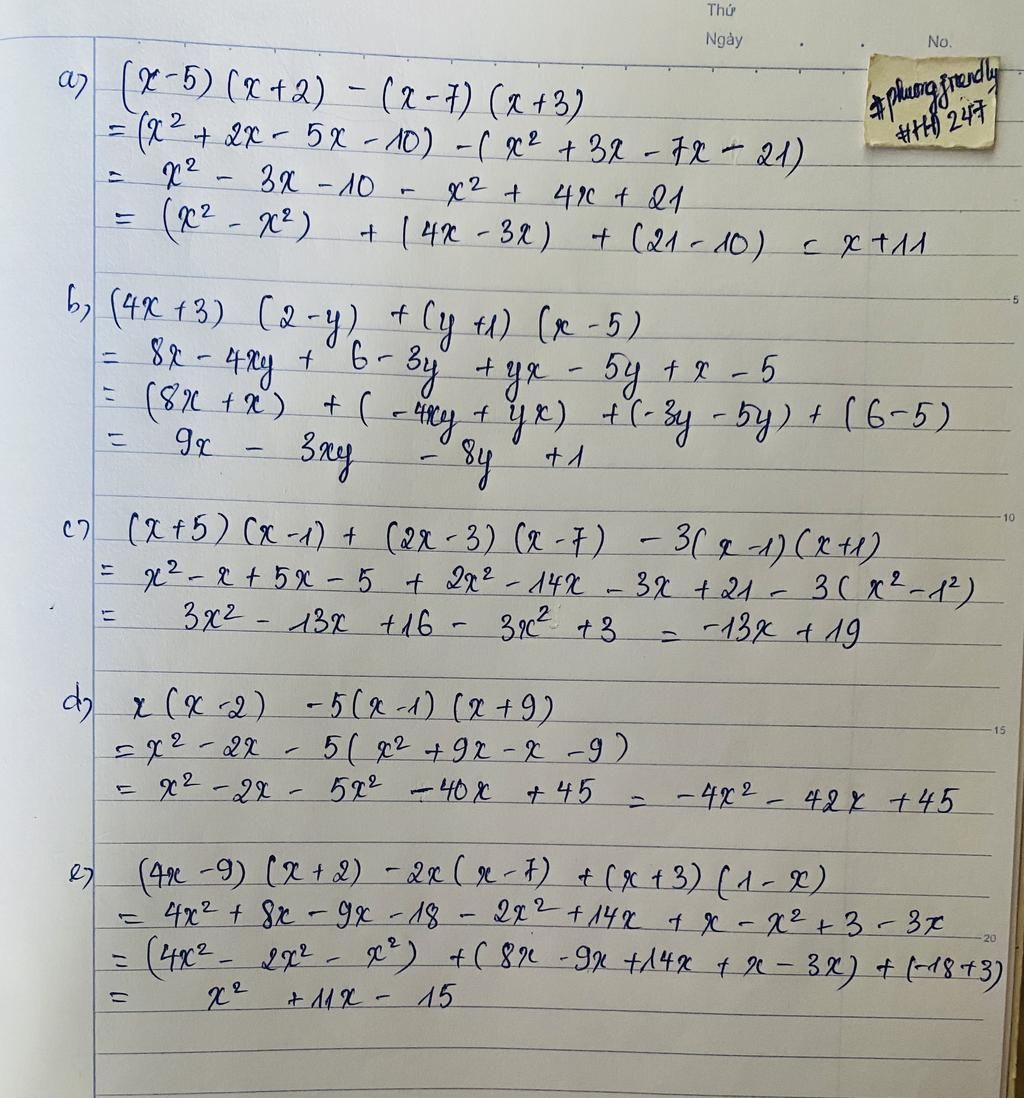 Thứ
Ngày
No.
#phuongfriendly
#HĐ 247
a) (x-5) (x+2) - (x-7) (x+3)
= (x² + 2x - 5x - 10) - (x² + 3x - 7x - 21)
= x² - 3x - 10 - x² + 4x + 21
= (x² - x²) + (4x - 3x) + (21 - 10) = x + 11
5
b) (4x + 3) (2 - y) + (y + 1) (x - 5)
= 8x - 4xy + 6 - 3y + yx - 5y + x - 5
= (8x + x) + (-4xy + yx) + (-3y - 5y) + (6 - 5)
= 9x - 3xy - 8y + 1
10
c) (x+5) (x-1) + (2x - 3) (x - 7) - 3(x-1)(x+1)
= x² - x + 5x - 5 + 2x² - 14x - 3x + 21 - 3(x² - 1²)
= 3x² - 13x + 16 - 3x² + 3 = -13x + 19
d) x (x - 2) - 5(x-1) (x+9)
15
= x² - 2x - 5(x² + 9x - x - 9)
= x² - 2x - 5x² - 40x + 45 = -4x² - 42x + 45
e) (4x - 9) (x + 2) - 2x (x - 7) + (x + 3) (1 - x)
= 4x² + 8x - 9x - 18 - 2x² + 14x + x - x² + 3 - 3x
20
= (4x² - 2x² - x²) + (8x - 9x + 14x + x - 3x) + (-18 + 3)
= x² + 11x - 15